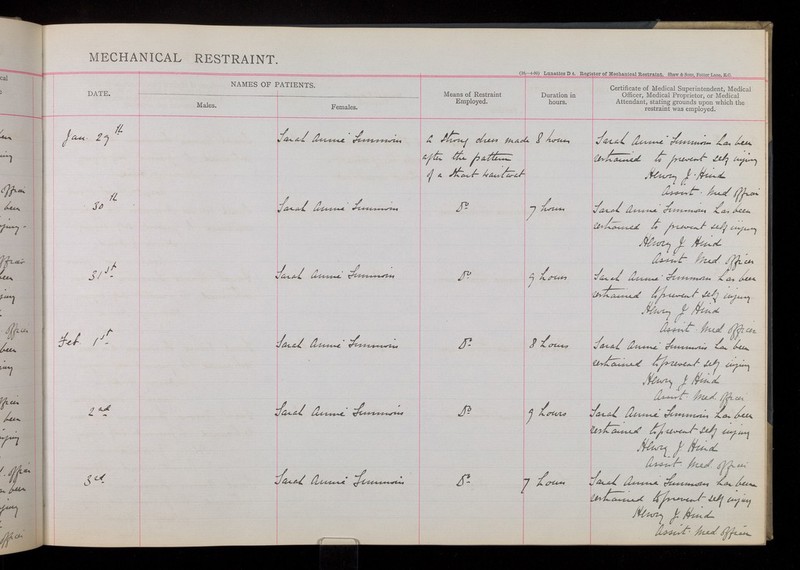 MECHANICAL RESTRAINT.
Lunatics D 4. Register of Mechanical Restraint. Shaw & Sons, Fetter Lane, E.C.
DATE.
NAMES OF PATIENTS.
Males.
Females.
Means of Restraint
Employed.
Duration in
hours.
Certificate of Medical Superintendent, Medical
Officer, Medical Proprietor, or Medical
Attendant, stating grounds upon which the
restraint was employed.
Jan. 29th Sarah Annie Simmons a strong dress made 8 hours Sarah Annie Simmons has been
after the pattern restrained to prevent self injury
of a strait waistcoat Henry J. Hind
Assist. Med Officer
30th Sarah Annie Simmons Do 7 hours Sarah Annie Simmons has been
restrained to prevent self injury
Henry J Hind
Assist Med Officer
31st Sarah Annie Simmons Do 9 hours Sarah Annie Simmons has been
restrained to prevent self injury.
Henry J Hind
Assist Med Officer
Feb 1st Sarah Annie Simmons Do 8 hours Sarah Annie Simmons has been
restrained to prevent self injury
Henry J Hind
Assist Med Officer
2nd Sarah Annie Simmons Do 9 hours Sarah Annie Simmons has been
restrained to prevent self injury
Henry J Hind
Assist Med. Officer
3rd Sarah Annie Simmons Do 7 hours Sarah Annie Simmons has been
restrained to prevent self injury
Henry J. Hind
Assist Med Officer